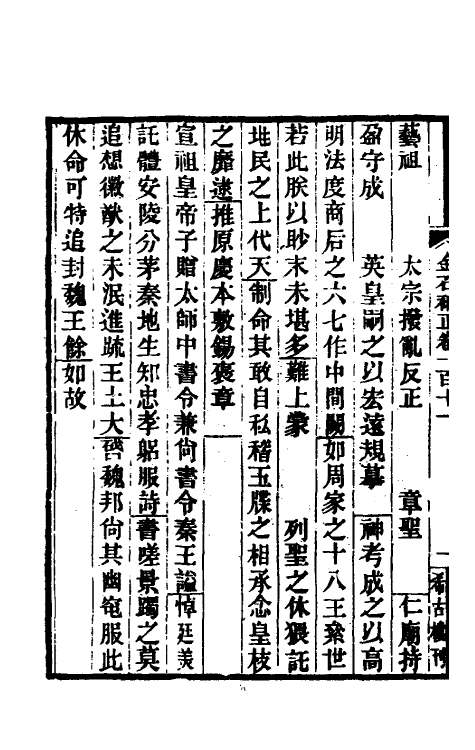 金石補正卷一百十一
一
希古樓刊
藝祖 太宗撥亂反正 章聖 仁廟持
盈守成 英皇嗣之以宏遠規摹 神考成之以高
明法度商后之六七作中間闕如周家之十八王粂世
若此朕以眇末未堪多難上蒙 列聖之休猥託
地民之上代天制命其敢自私稽玉牒之相承念皇枝
之靡逮推原慶本敷錫褒章
宣祖皇帝子贈太師中書令兼尚書令秦王謚悼廷美
託體安陵分茅秦地生知忠孝躬服詩書嗟景躅之莫
追想徽猷之未泯進疏王土大啓魏邦尙其幽窀服此
休命可特追封魏王餘如故